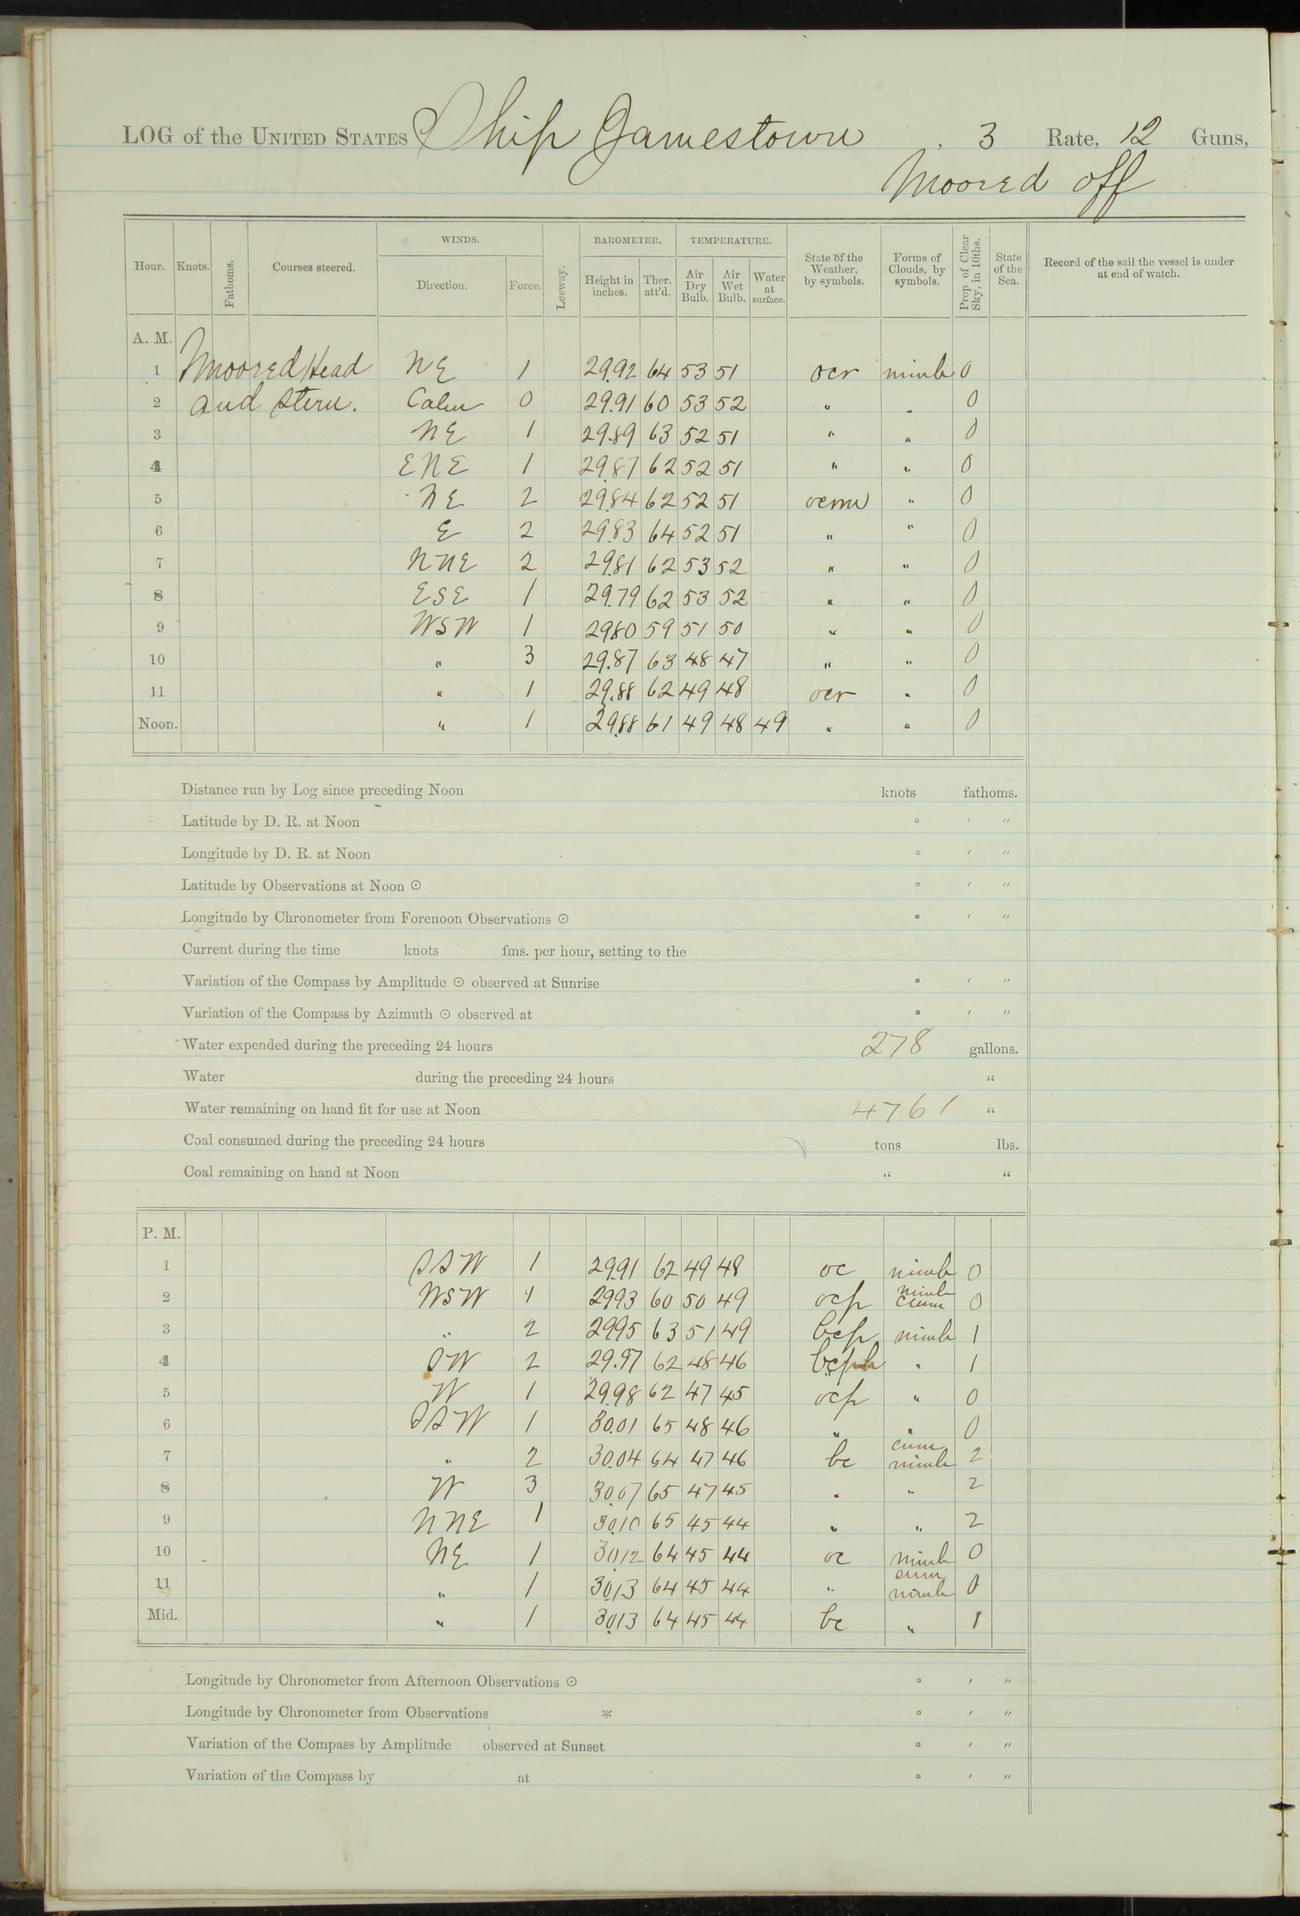 LOG of the UNITED STATES Ship Jamestown, 3 Rate, 12 Guns,
Moored off
WINDS. BAROMETER. TEMPERATURE.
Hour. Knots. Fathoms. Courses steered. Direction. Force. Leeway. Height in inches. Ther. att'd. Air Dry Bulb. Air Wet Bulb. Water at surface. State of the Weather, by symbols. Forms of Clouds, by symbols. Prop. of Clear Sky, in 10ths. State of the Sea. Record of the sail the vessel is under at end of watch.
A. M.
1 Moored Head NE 1 29.92 64 53 51 ocr nimb 0
2 and stern. Calm 0 29.91 60 53 52 " " 0
3 NE 1 29.89 63 52 51 " " 0
4 ENE 1 29.87 62 52 51 " " 0
5 NE 2 29.84 62 52 51 ocmr " 0
6 E 2 29.83 64 52 51 " " 0
7 NNE 2 29.81 62 53 52 " " 0
8 ESE 1 29.79 62 53 52 " " 0
9 WSW 1 29.80 59 51 50 " " 0
10 " 3 29.87 63 48 47 " " 0
11 " 1 29.88 62 49 48 ocr " 0
Noon. " 1 29.88 61 49 48 49 " " 0
Distance run by Log since preceding Noon knots fathoms.
Latitude by D. R. at Noon ° ′ ″
Longitude by D. R. at Noon ° ′ ″
Latitude by Observations at Noon ☉ ° ′ ″
Longitude by Chronometer from Forenoon Observations ☉ ° ′ ″
Current during the time knots fms. per hour, setting to the
Variation of the Compass by Amplitude ☉ observed at Sunrise ° ′ ″
Variation of the Compass by Azimuth ☉ observed at ° ′ ″
Water expended during the preceding 24 hours 278 gallons.
Water during the preceding 24 hours "
Water remaining on hand fit for use at Noon 4761 "
Coal consumed during the preceding 24 hours tons lbs.
Coal remaining on hand at Noon " "
P. M.
1 SSW 1 29.91 62 49 48 oc nimb 0
2 WSW 1 29.93 60 50 49 ocp nimb cum 0
3 " 2 29.95 63 51 49 bcp nimb 1
4 SW 2 29.97 62 48 46 bcph " 1
5 W 1 29.98 62 47 45 ocp " 0
6 SSW 1 30.01 65 48 46 " " 0
7 " 2 30.04 64 47 46 bc cum nimb 2
8 W 3 30.07 65 47 45 " " 2
9 NNE 1 30.10 65 45 44 " " 2
10 NE 1 30.12 64 45 44 oc nimb 0
11 " 1 30.13 64 45 44 " cum nimb 0
Mid. " 1 30.13 64 45 44 bc " 1
Longitude by Chronometer from Afternoon Observations ☉ ° ′ ″
Longitude by Chronometer from Observations * ° ′ ″
Variation of the Compass by Amplitude observed at Sunset ° ′ ″
Variation of the Compass by at ° ′ ″